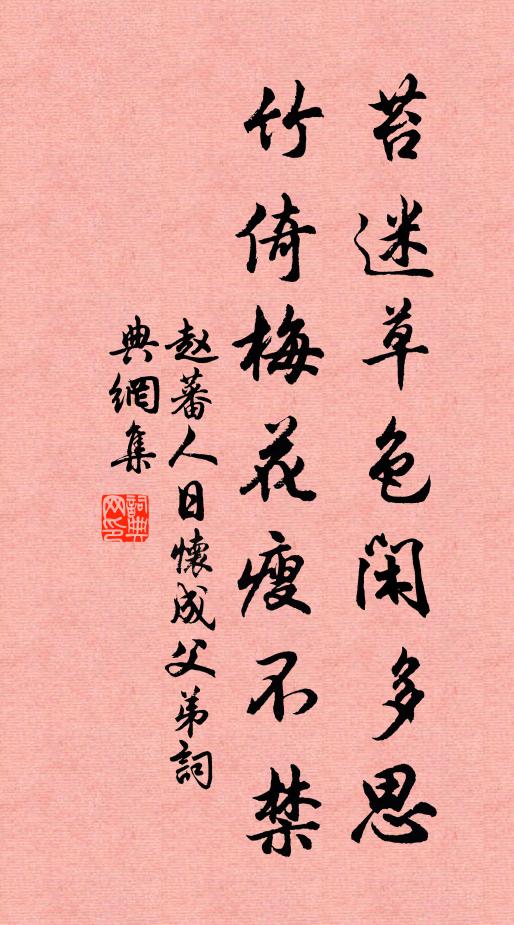 苔迷草色閑多思
竹倚梅花瘦不禁
赵蕃人日懷成父弟詞
典網集
詞典网印